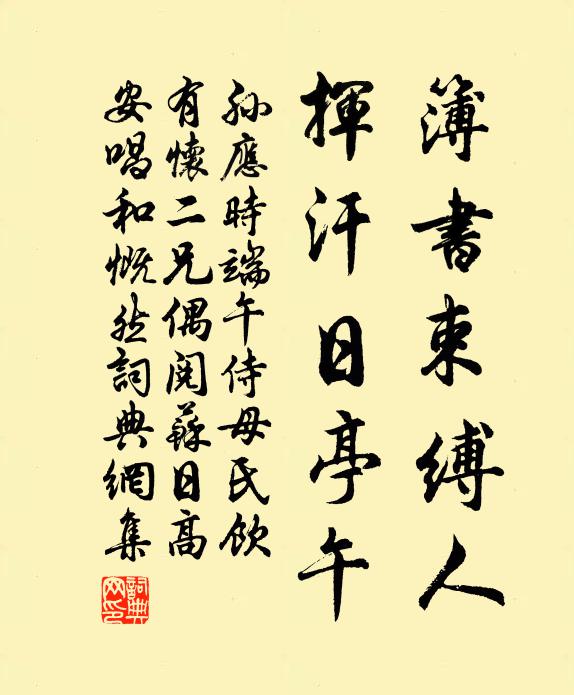 簿書束縛人
揮汗日亭午
孙應時端午侍母氏飲
有懷二兄偶閱蘇日高
安唱和慨然詞典網集
詞典
网印